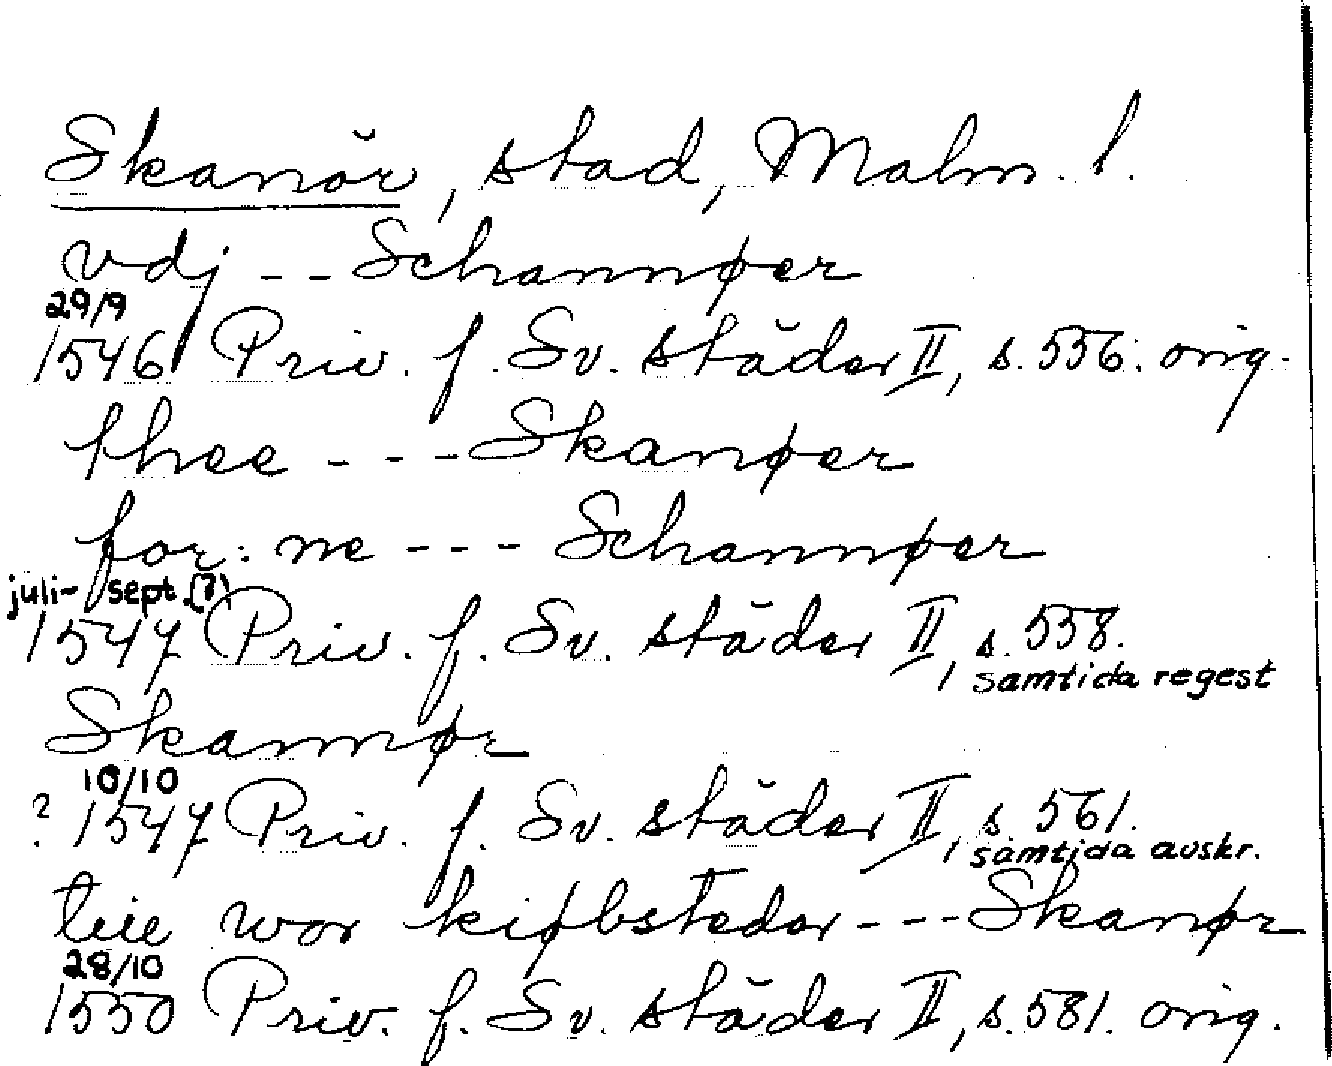 Skanör, stad, Malm. l.
vdj -- Schannøer
29/9
1546 Priv. f. Sv. städer II, s. 556. orig.
thee --- Skanøer
for: ne --- Schannøer
juli- sept (?)
1547 Priv. f. Sv. städer II, s. 558.
, samtida regest
Skannør
10/10
? 1547 Priv. f. Sv. städer II, s. 561.
, samtida avskr.
teie wor kiøbsteder --- Skanør
28/10
1550 Priv. f. Sv. städer II, s. 581. orig.